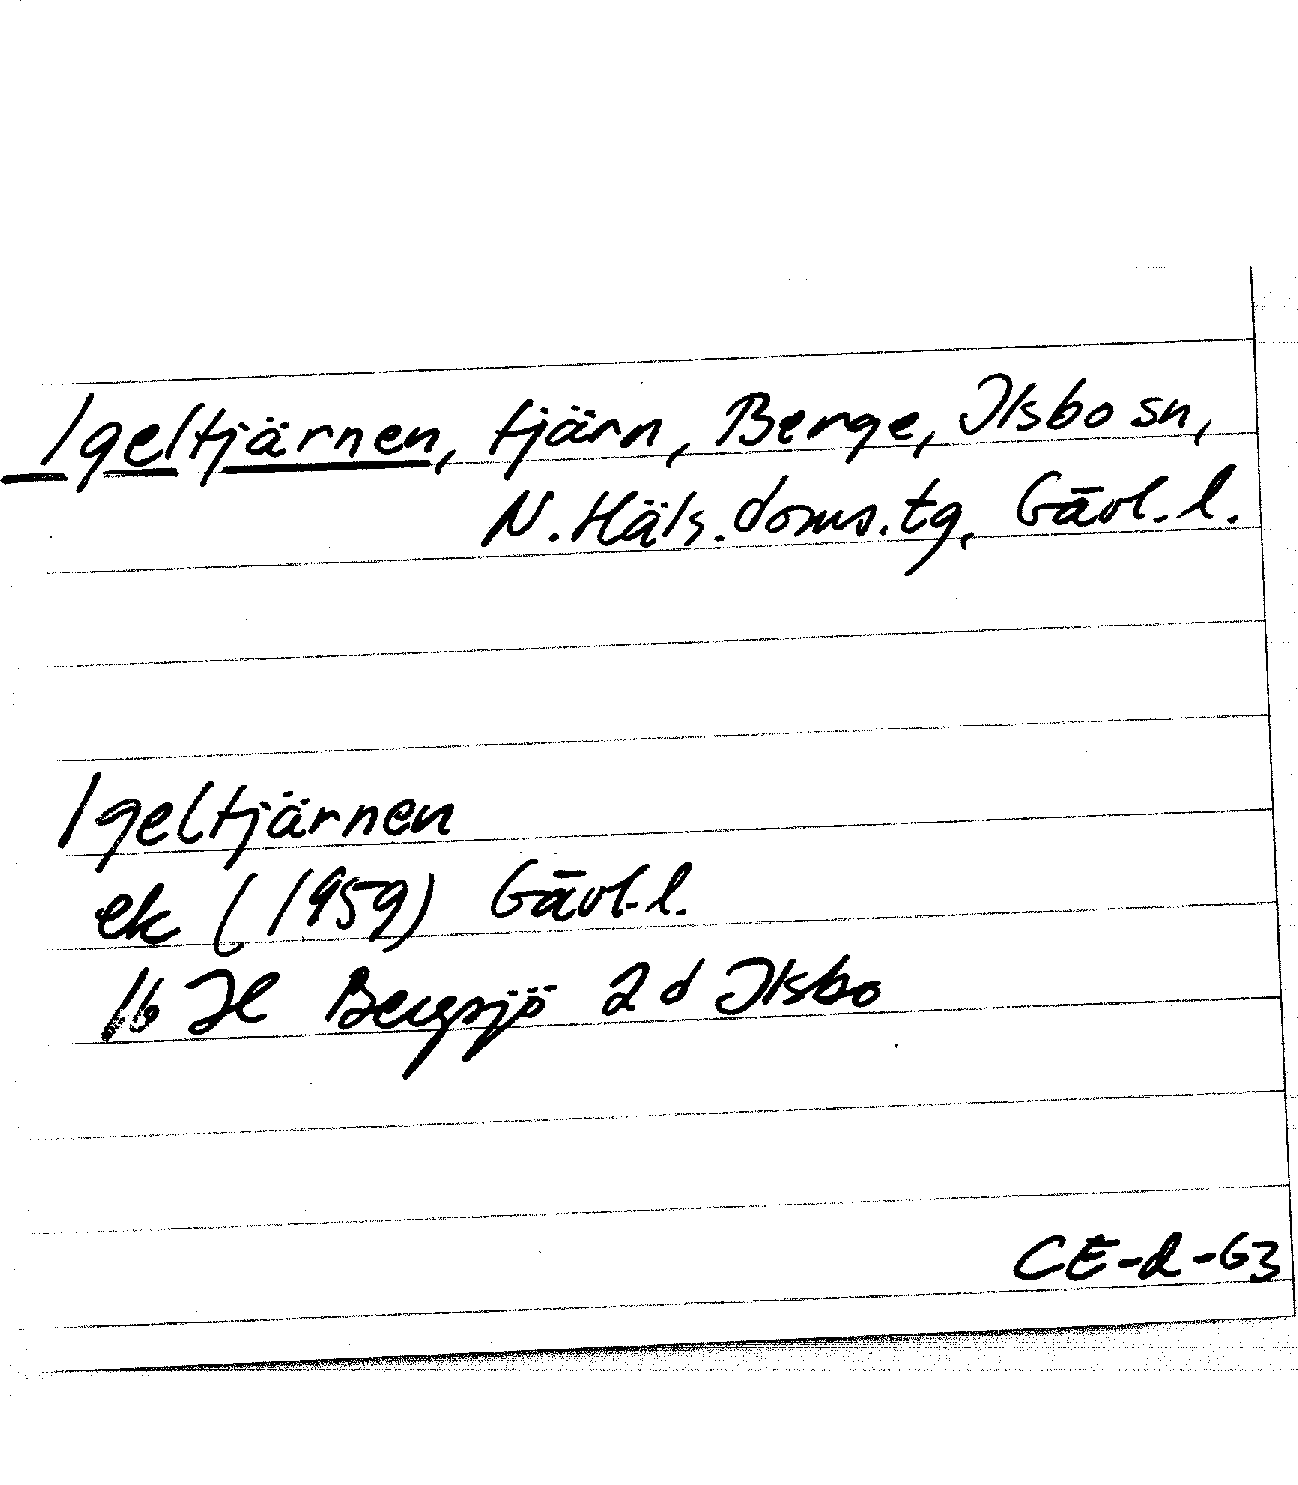 Igeltjärnen, tjärn, Berge, Ilsbo sn,
N. Häls. doms. tg, Gävl. l.
Igeltjärnen
ek (1959) Gävl. l.
16 H Bergsjö 2 d Ilsbo
CE-d-63